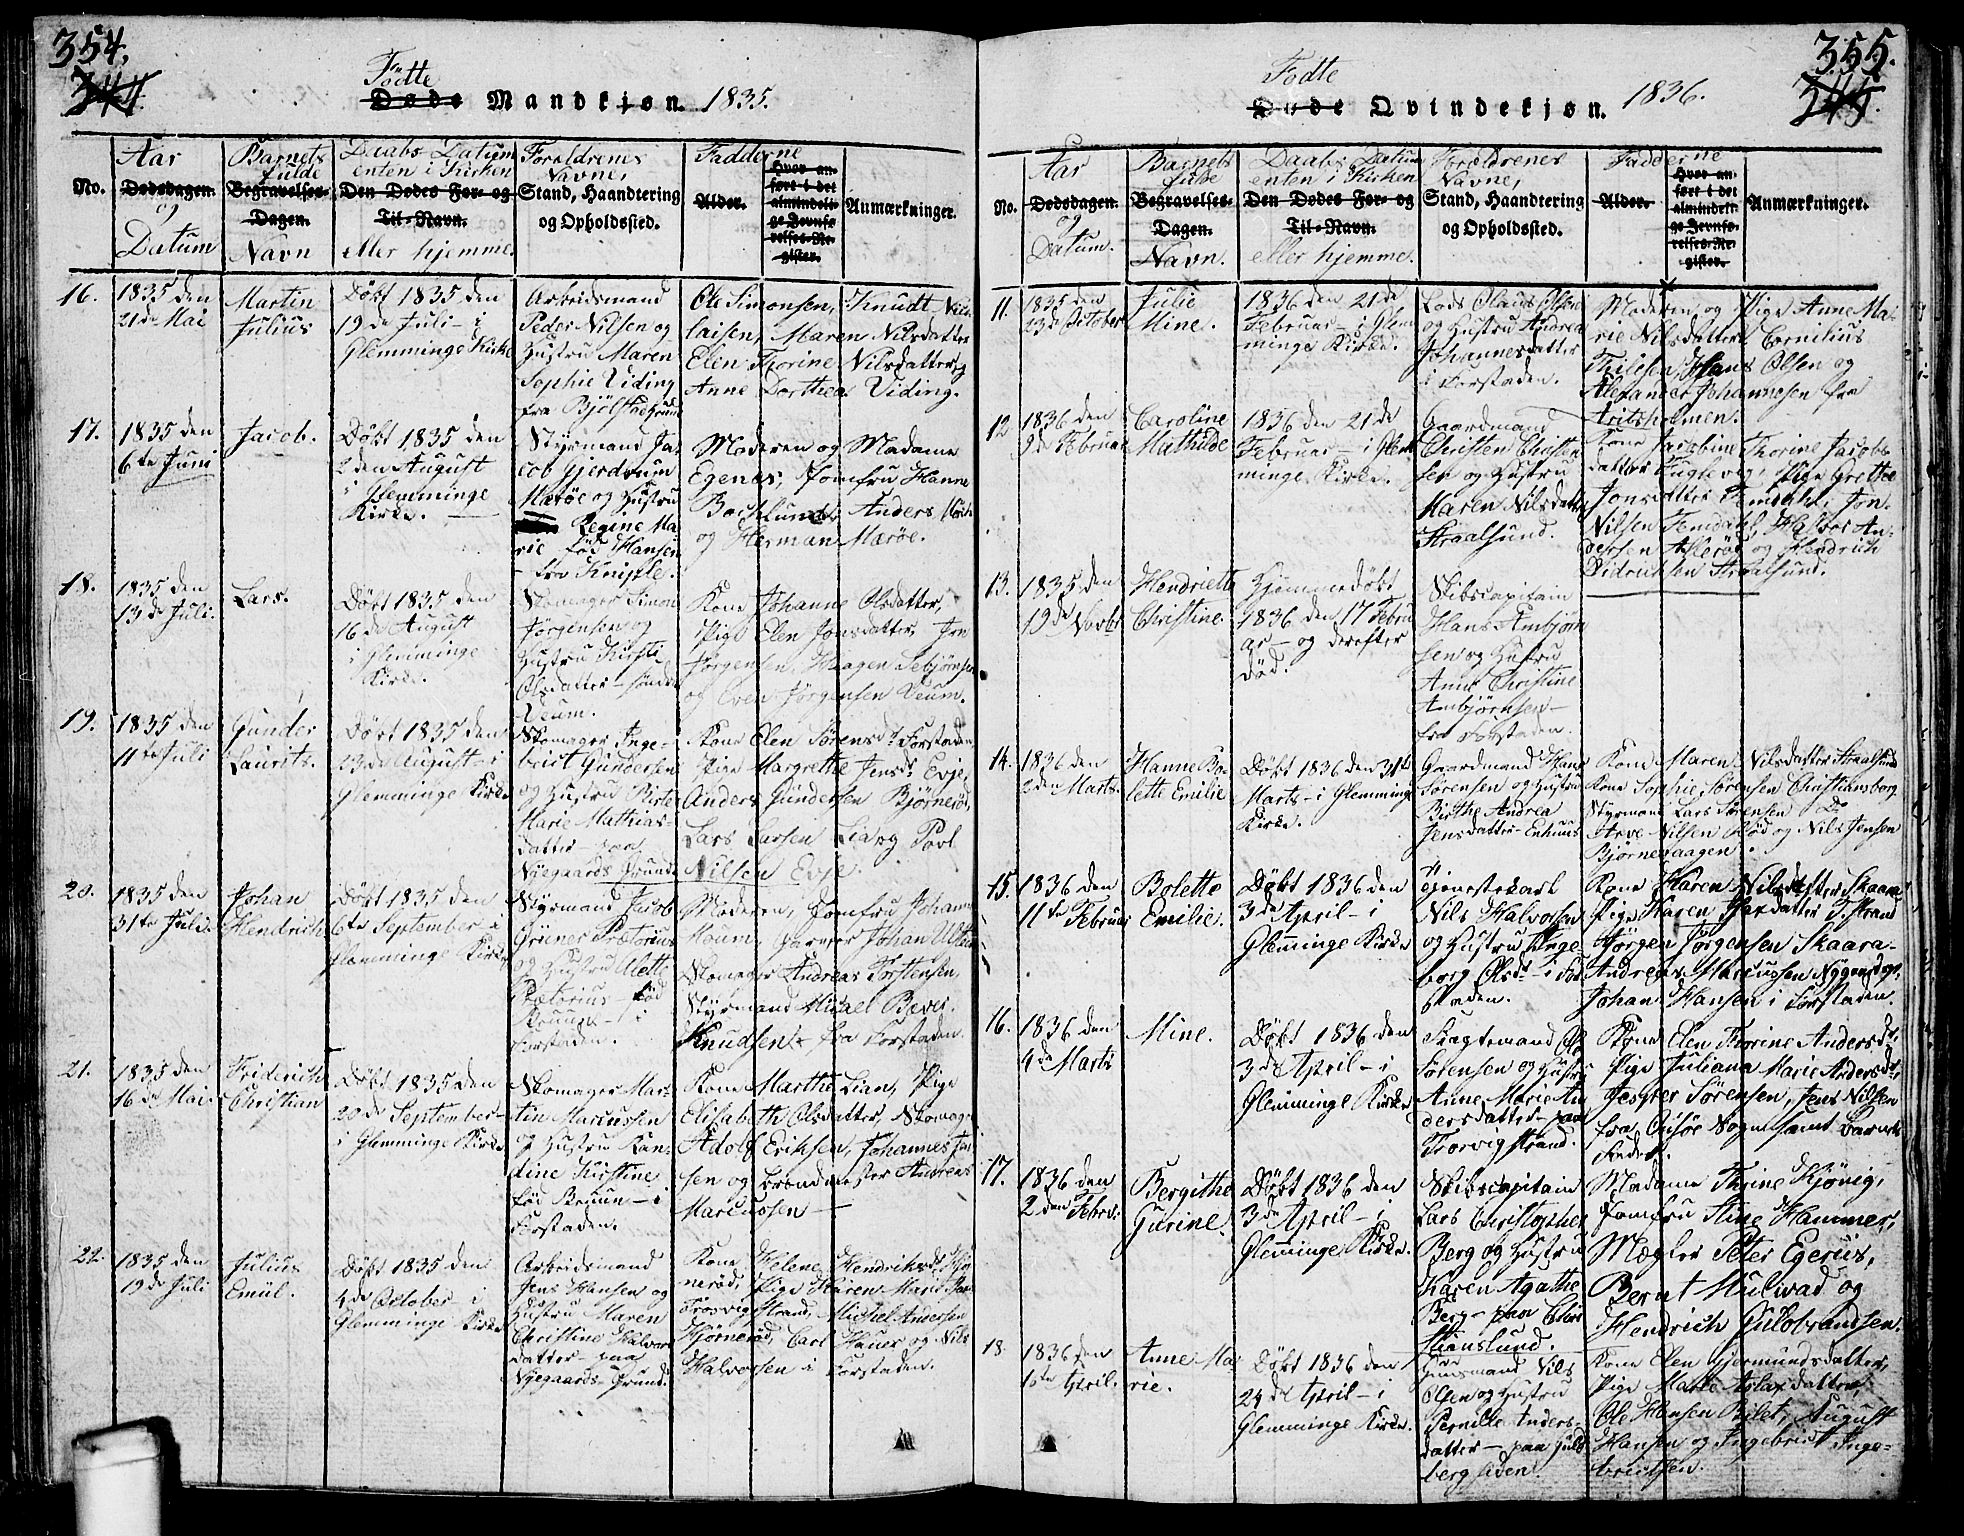 354.
344
Födte
Døde Mandkjøn. 1835.
No.
Aar
Dødsdagen.
og
Datum
Barnets
fulde
Begravelses-
Dagen.
Navn
Daabs Datum
enten i Kirken
Den Dødes For- og
Til-Navn.
eller hjemme.
Foraldrenes
Navne,
Stand, Haandtering
og Opholdssted.
Fadderne
Alder.
Hvor an-
ført i det
almindeli-
ge Jevnfø-
relses-Re-
gister.
Anmærkninger.
16.
1835 den
21de Mai
Martin
Julius
Døbt 1835 den
19de Juli - i
Glemminge Kirke
Arbeidsmand
Peder Nilsen og
Hustru Maren
Sophie Viding
fra Bjölstad Grund
Ole Simonsen, Knudt Nico-
laisen, Maren Nilsdatter
Elen Thorine Nilsdatter og
Anne Dorthea Viding.
17.
1835 den
6te Juni
Jacob.
Døbt 1835 den
2den August
i Glemminge
Kirke.
Styrmand Ja-
cob Gjerdrum
Marøe og Hustru
Regine Ma-
rie fød Hansen
fra Kniple.
Moderen og Madame
Egenes, Jomfru Hanne
Bachlund, Anders
og Herman Marøe.
18.
1835 den
13de Juli.
Lars.
Døbt 1835 den
16de August
i Glemminge
Kirke.
Skomager Simon
Jørgensen og
Hustru Kirsti
Olsdatter - søndre
Veum.
Kone Johanne Olsdatter,
Pige Elen Jonsdatter, Jon
Jørgensen, Haagen Sebjørnsen
og Even Jørgensen Veum.
19.
1835 den
11te Juli
Gunder
Laurits.
Døbt 1835 den
23de August - i
Glemminge Kirke
Skomager Inge-
brigt Gundersen
og Hustru Birte
Marie Mathias-
datter paa
Nygaards Grund
Kone Elen Sørensdr Forstaden
Pige Margrethe Jensdr Evje,
Anders Gundersen Bjørnerød,
Lars Larsen Lia og Povl
Nilsen Evje.
20.
1835 den
31te Juli.
Johan
Hendrich
Døbt 1835 den
6te September i
Glemminge Kirke
Styrmand Jacob
Grüner Prætorius
og Hustru Alette
Prætorius - fød
Bruun - i
Forstaden.
Moderen, Jomfru Johanne
Houm, Farver Johan
Skomager Andreas Torstensen,
Styrmand Michael Bever.
Knudsen - fra Forstaden
21.
1835 den
16de Mai
Friderich
Christian
Døbt 1835 den
20de September -
i Glemminge Kirke
Skomager Mar-
tin Marcussen
og Hustru Kan-
dine Kirstine
fød Bruun - i
Forstaden.
Kone Marthe Lian, Pige
Elisabeth Olsdatter, Skomager
Adolf Eriksen, Johannes
sen og Brandmester Andreas
Marcussen -
22.
1835 den
19de Juli
Julius
Emül.
Døbt 1835 den
4de October - i
Glemminge Kirke
Arbeidsmand
Jens Hansen og
Hustru Maren
Christine Halvors-
datter - paa
Nyegaards Grund.
Kone Helene Hendriksdr
nerød, Pige Karen Marie
Trosvig Strand, Michel Andersen
Kjørnerød, Carl Hauer og Nils
Halvorsen i Forstaden.
355.
345.
Fodte
Døde Qvindekjøn. 1836.
No.
Aar
Dødsdagen.
og
Datum.
Barnets
fulde
Begravelses-
Dagen.
Navn.
Daabs Datum
enten i Kirken
Den Dødes For- og
Til-Navn.
eller hjemme.
Foraldrenes
Navne,
Stand, Haandtering
og Opholdssted.
Fadderne
Alder.
Hvor an-
ført i det
almindeli-
ge Jevnfø-
relses-Re-
gister.
Anmærkninger.
11.
1835 den
23de October
Julie
Mine.
1836 den 21de
Februar - i Glem
minge Kirke.
Lods Olaus Olsen
og Hustru Andrea
Johannesdatter
i Forstaden.
Moderen, og Pige Anne Ma-
rie Nilsdatter, Cornilius
Thilesen, Hans Olsen og
Alexander Johannesen fra
Kritsholmen.
12
1836 den
9de Februar
Caroline
Mathilde
1836 den 21de
Februar - i Glem
minge Kirke.
Gaardmand
Christen Christen
sen og Hustru
Maren Nilsdatter
Straalsund.
Kone Jacobine Thorine Jacobs
datter Fuglevig, Pige Grethe
Jonsdatter Temdahl, Jon
Nilsen Temdahl, Anders An-
dersen Allerød og Hendrich
Didrichsen Straalsund.
13.
1835 den
19de Novbr
Hendriette
Christine.
Hjemmedøbt
1836 den 17 Febru
ar - og derefter
død.
Skibscapitain
Hans Ambjørn
sen og Hustru
Anne Christine
Ambjørnsen -
fra Forstaden.
14.
1836 den
2den Marts.
Hanne Bo-
lette Emilie
Døbt 1836 den 31te
Marts - i Glemminge
Kirke.
Gaardmand Hans
Sørensen og Hustru
Birthe Andrea
Jensdatter - Enhuus
Kone Maren Nilsdatter Straalsund
Kone Sophie Sørensen Christiansborg
Styrmand Lars Sørensen Do
Arve Nilsen Rød og Nils Jensen
Bjørnevaagen.
15.
1836 den
11te Februar
Bolette
Emilie.
Døbt 1836 den
3de April - i
Glemminge Kirke
Tjenestekarl
Nils Halvorsen
og Hustru Inge
borg Olsdr - i For
staden.
Kone Karen Nilsdatter Skaara
Pige Karen Isaxdatter T. Strand
Jørgen Jørgensen Skaara-
Andreas Marcussen Nygaard og
Johan Hansen i Forstaden.
16.
1836 den
4de Marts
Mine.
Døbt 1836 den
3de April - i
Glemminge Kirke
Fragtemand Ole
Sørensen og Hustru
Anne Marie An
dersdatter - paa
Trosvig Strand.
Kone Elen Thorine Andersdr,
Pige Juliana Marie Andersdr,
Jesper Sørensen, Jens Nilsen
fra Onsøe Sogn samt Barnets
Fader.
17.
1836 den
2den Febr.
Bergithe
Gurine.
Døbt 1836 den
3de April - i
Glemminge Kirke.
Skibscapitain
Lars Christopher
Berg og Hustru
Karen Agathe
Berg - paa Chri
stianslund.
Madame Thrine Kjønig,
Jomfru Stine Hammer,
Mægler Peter Egerus,
Bernt Mulwad og
Hendrich Gulbrandsen.
18.
1836 den
1ste April.
Anne Ma
rie.
Døbt 1836 den
24de April - i
Glemminge Kirke.
Huusmand Nils
Olsen og Hustru
Pernille Anders-
datter - paa Guld
berg siden.
Kone Elen Gjermundsdatter,
Pige Marte Aslaxdatter,
Ole Hansen Bilet, August
Hansen og Ingebrigt Inge-
brigtsen.